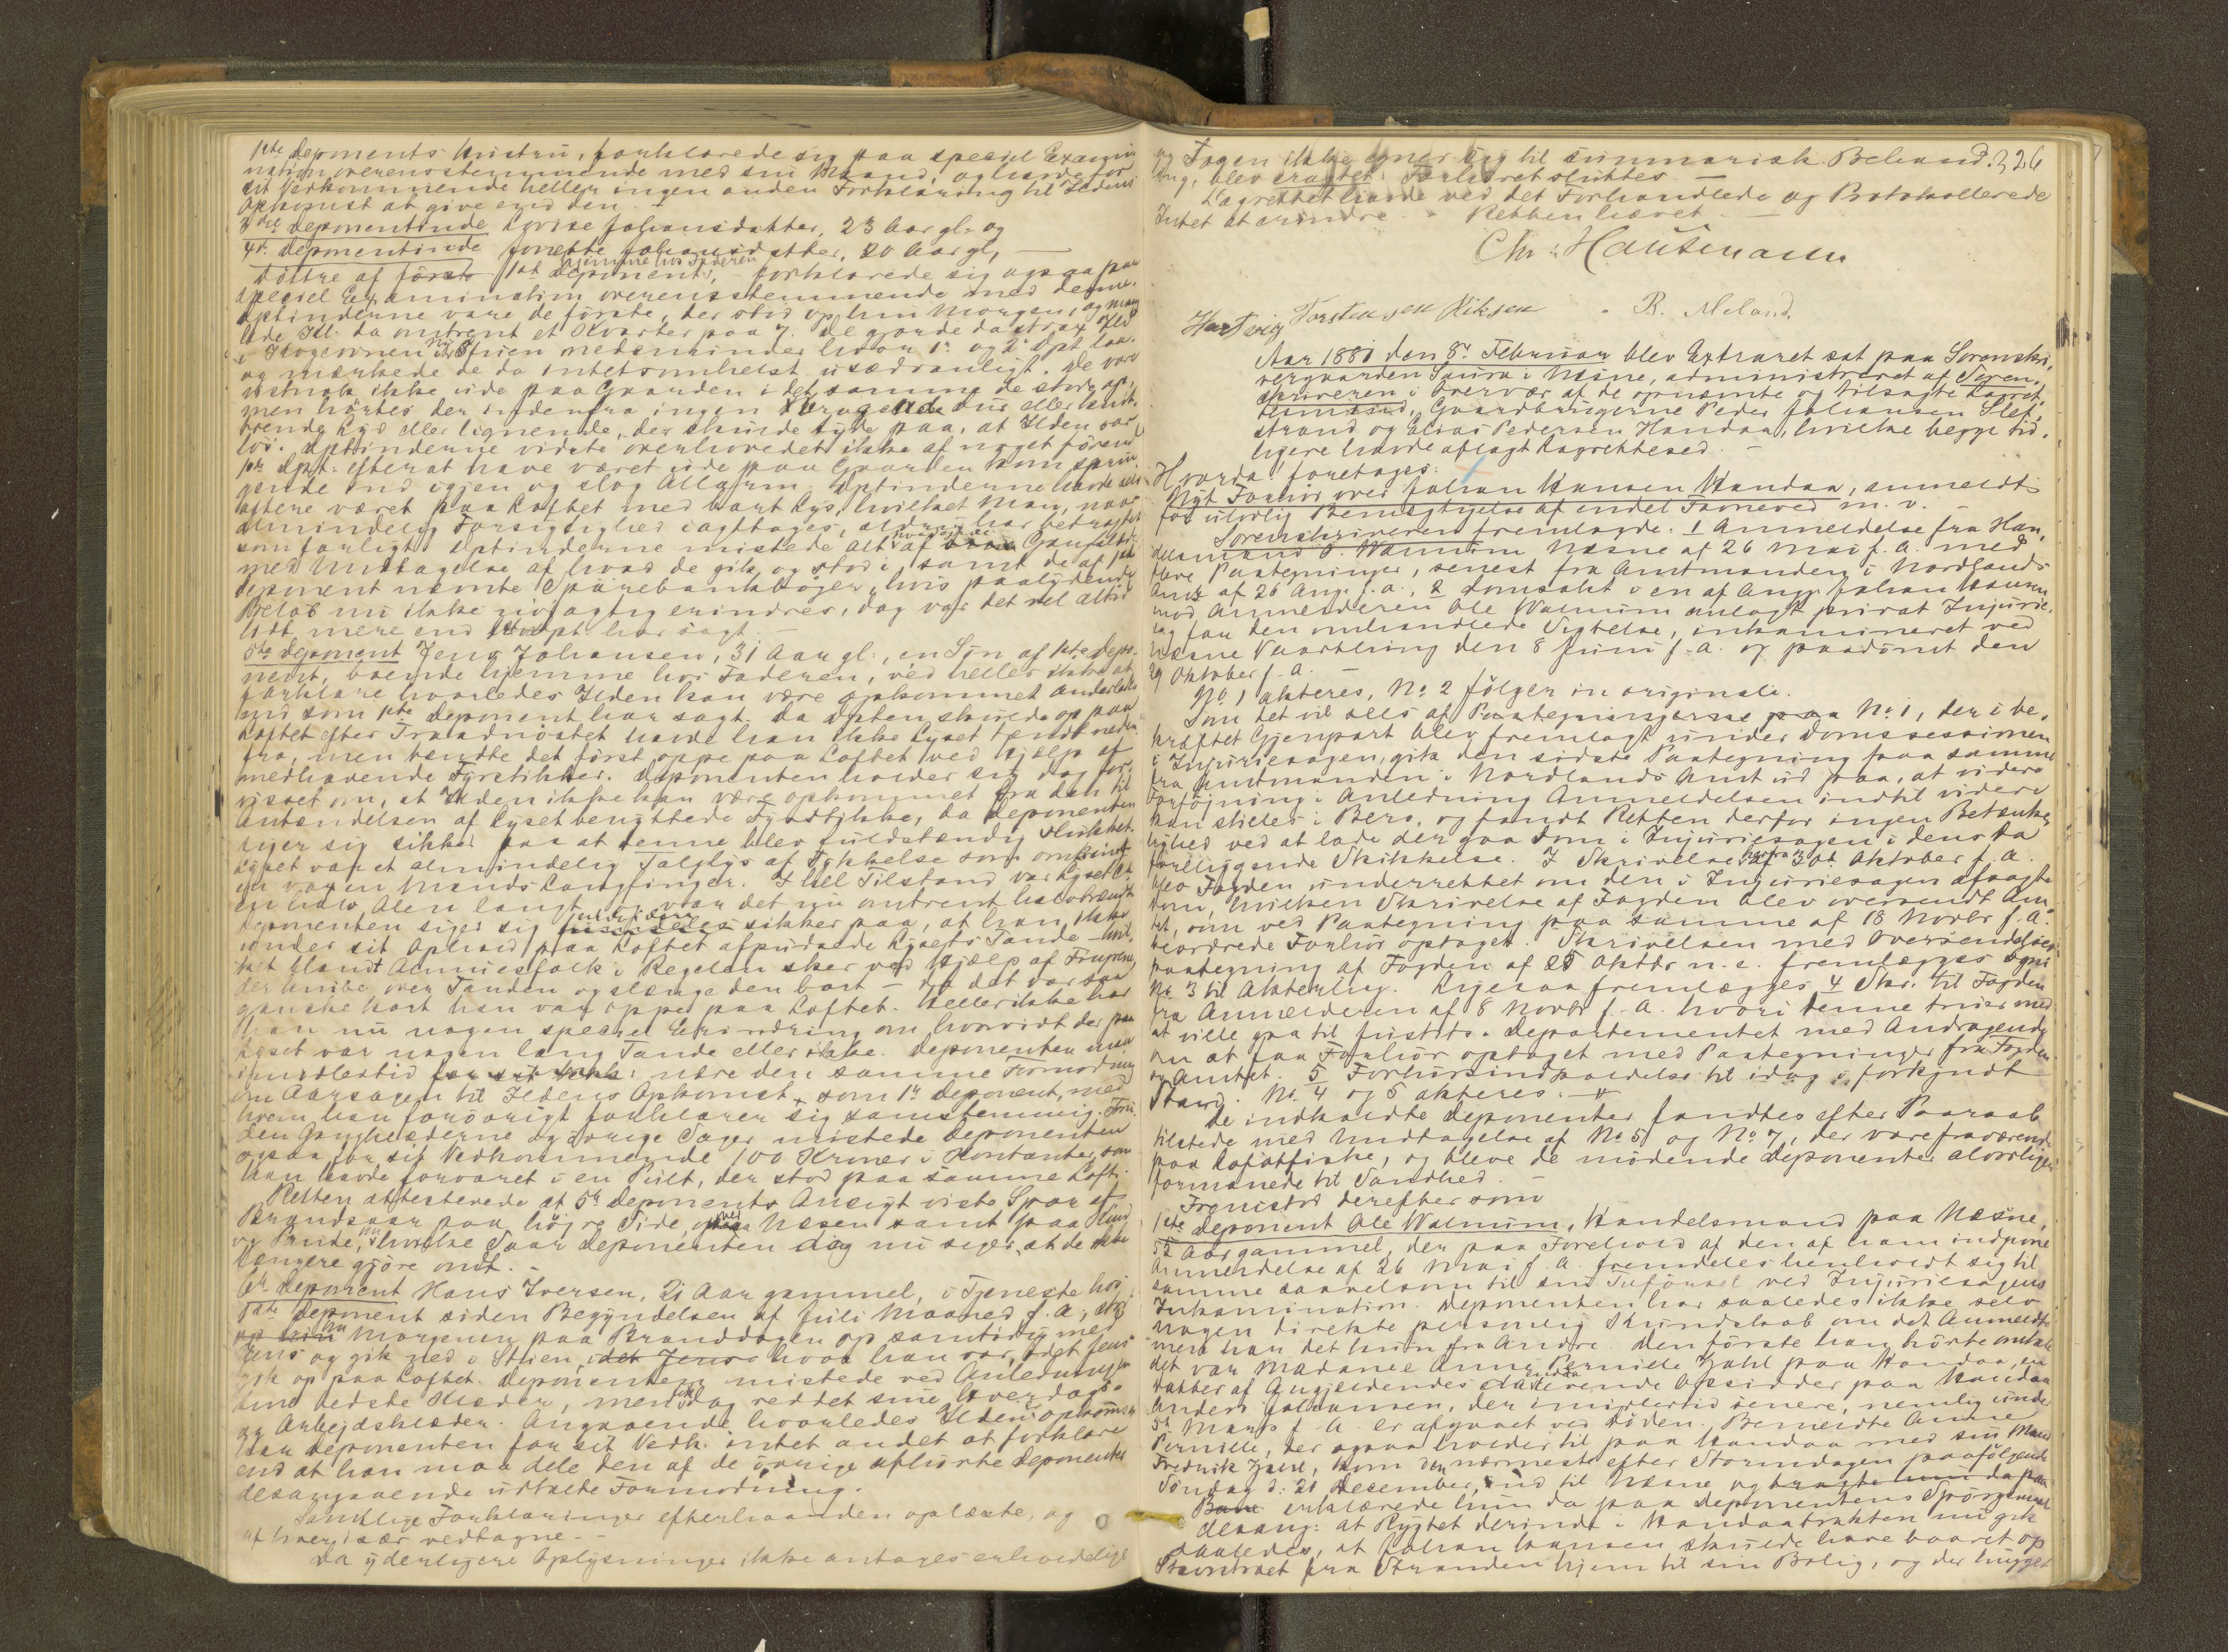 1ste Deponents Hustru, forklarede sig paa speciel Exami-
nation overensstemmende med sin Mand, og havde for
sit Vedkommende heller ingen anden Forklaring til Ildens
Opkomst at give end den. -
3die Deponentinde Lovise Johansdatter, 23 Aar gl. og
4de Deponentinde Johansdatter, 20 Aar gl,
Døttre af første 1st Deponent, hjemme hos Faderen forklarede sig ogsaa paa
speciel Examination overensstemmende med denne.
Dptinderne vare de første, der stod op hin Morgen, og
Kl. da omtrent et Kvarter paa 7. De gjorde da strax Ild
i Kogeovnen i Stuen nedenunder hvor 1st og 2d Dpt laa
og mærkede de da intetsomhelst usædvanligt. De vare
vistnok ikke ude paa Gaarden i det samme de stode op,
men hørtes der indenfra ingen Dur eller
Lyd eller lignende, der skulde tyde paa, at Ilden var
løs. Dptinderne vidste overhovedet ikke af noget førend
1ste Dpt. efterat have været ude paa Gaarden kom sprin-
gende ind igjen og slog Allarm. Dptinderne havde selv
oftere været paa Loftet med bart Lys, hvilket Man, naar
almindelig Forsigtighed iagttages, aldrig har betragtet
som farligt. Dptinderne mistede Alt af Gangklæder
med Undtagelse af hvad de gik og stod i, samt de af 1ste
Deponent nævnte Sparebankbøger, hvis paalydende
Beløb nu ikke nøiagtig erindres, dog var det vel altid
lidt mere end Dpt. har sagt. -
5te Deponent Jens Johansen, 31 Aar gl., en Søn af 1ste Depo-
nent, boende hjemme hos Faderen, ved heller ikke at
forklare hvorledes Ilden kan være opkommet anderledes
end som 1ste Deponent har sagt. Da Dpten skulde op paa
Loftet efter havde han ikke Lyset tændt neden-
fra, men tændte det først oppe paa Loftet ved Hjælp af
medhavende Fyrstikker. Deponenten holder sig dog for-
visset om, at Ilden ikke kan være opkommet fra den til
Antændelsen af Lyset benyttede Fyrstikke, da Deponenten
siger sig sikker paa at denne blev fuldstændig slukket.
Lyset var et almindelig Talglys af Tykkelse som omtrent
en voxen Mands Langfinger. I hel Tilstand var Lyset ca
en halv Alen langt, og var det nu omtrent halvbrændt
Deponenten siger sig sikker paa, at han ikke
under sit Ophold paa Loftet afpudsede Lysets Tande - hvil-
ket blandt Almuesfolk i Regelen sker ved Hjælp af Fingrene,
der knibe over Tanden og slænge den bort - da det var saa
ganske kort han var oppe paa Loftet. Heller ikke har
han nu nogen speciel Erindring om, hvorvidt der paa
Lyset var nogen lang Tande eller ikke. Deponenten maa
imidlertid nære den samme Formodning
om Aarsagen til Ildens Opkomst som 1st Deponent, med
hvem han forøvrigt forklarer sig samstemmig. For-
uden Gangklæderne og øvrige Sager mistede Deponenten
ogsaa for sit Vedkommende 100 Kroner i Kontanter, som
han havde forvaret i en Pult, der stod paa samme Loft.
Retten attesterede at 5te Deponents Ansigt viste Spor af
Brandsaar paa højre Side, ved Næsen samt paa Kind
og Pande, hvilke Saar Deponenten dog nu siger, at de ikke
længere gjøre ondt. -
6te Deponent Hans Iversen, 21 Aar gammel, i Tjeneste hos
1ste Deponent siden Begyndelsen af Juli Maaned f. A., stod
op hin Morgenen paa Branddagen op samtidig med
Jens og gik ned i Stuen, idet Jens hvor han var, idet Jens
gik op paa Loftet. Deponenten mistede ved Anledningen
sine bedste Klæder, men fik dog reddet sine Hverdags-
og Arbejdsklæder. Angaaende hvorledes Ilden opkom
har Deponenten for sit Vedk. intet andet at forklare
end at han maa dele den af de øvrige afhørte Deponenter
desangaaende udtalte Formodning.
Samtlige Forklaringer efterhaanden oplæste, og
af hver især vedtagne. -
Da yderligere Oplysninger ikke antages erholdelige
og Sagen ikke egner sig til summarisk Behand- 326
ling, blev eragtet: Forhøret sluttes. -
Lagrettet havde ved det Forhandlede og Protokollerede
Intet at erindre - Retten hævet. -
Chr. Hausmann
Hartvig Torstensen R. Meland.
Aar 1881 den 8de Februar blev Extraret sat paa Sorenskri-
vergaarden i Næsne, administreret af Soren-
skriveren i Overvær af de opnævnte og tilsagte Lagret-
temænd, Gaardbrugerne Peder Johansen Slet-
strand og Elias Pedersen Handaa, hvilke begge tid-
ligere havde aflagt Lagrettesed. -
Hvorda foretages:
Nyt Forhør over Johan Hansen Handaa, anmeldt
for ulovlig Bemægtigelse af endel Favneved m. v. -
Sorenskriveren fremlagde. 1 Anmeldelse fra Han-
delsmand O. Walnum Næsne af 26 Mai f. A. med
flere Paategninger, senest fra Amtmanden i Nordlands
Amt af 26 Aug. f. A., 2 Domsakt i en af Angj. Johan Hansen
mod Anmelderen Ole Walnum anlagt privat Injurie-
sag for den omhandlede Sigtelse, inkamineret ved
Næsne Vaarthing den 8 Juni f. A. og paadømt den
29 Oktober f. A. -
No 1 akteres, No 2 følger in originali.
Som det vil sees af Paategningerne paa No 1, der i be-
kræftet Gjenpart blev fremlagt under Domssessionen
i Injuriesagen, gik den sidste Paategning paa samme
fra Amtmanden i Nordlands Amt ud paa, at videre
Forføining i Anledning Anmeldelsen indtil videre
kan stilles i Bero, og fandt Retten derfor ingen Betænke-
lighed ved at lade der gaa Dom i Injuriesagen i dens da
foreliggende Skikkelse. I Skrivelse herfra af 30te Oktober f. A.
blev Fogden underrettet om den i Injuriesagen afsagte
Dom, hvilken Skrivelse af Fogden blev oversendt Am-
tet, som ved Paategning paa samme af 18 Novbr f. A.
beordrede Forhør optaget. Skrivelsen med Oversendelses-
paategning af Fogden af fremlægges som
No 3 til Aktering. Ligesaa fremlægges 4 Skr. til Fogden
fra Anmelderen af 8 Novbr f. A. hvori denne truer med
at ville gaa til Justits-Departementet med Andragende
om at faa Forhør optaget med Paategninger fra Fogden
og Amtet. 5 Forhørsindkaldelse til idag i forkyndt
Stand. No 4 og 5 akteres. -
De indkaldte Deponenter fandtes efter Paaraab
tilstede med Undtagelse af No 5 og No 7, der vare fraværende
paa Lofotfiske, og bleve de mødende Deponenter alvorligen
formanede til Sandhed. -
Fremstod derefter som
1ste Deponent Ole Walnum, Handelsmand paa Næsne,
52 Aar gammel, der paa Forehold af den af ham indgivne
Anmeldelse af 26 Mai f. A. fremdeles henholdt sig til
samme saavelsom til sin Tilførsel ved Injuriesagens
Inkamination. Deponenten har saaledes ikke selv
nogen direkte personlig Kundskab om det Anmeldte
men har det kun fra Andre. Den første han hørte omtale
det var Madame Anne Pernille Zahl paa Handaa, en
Datter af Angjældendes Opsidder paa Handaa
Anders Johansen, der imidlertid senere, nemlig under
5te Marts f. A. er afgaaet ved Døden. Bemeldte Anne
Pernille, der ogsaa holder til paa Handaa med sin Mand
Fredrik Zahl, kom den nærmest efter Stormdagen paafølgende
Søndag d. 21 December, ind til Næsne og bragte hun da paa
Bane erklærede hun da paa Deponentens Spørgsmaal
desang: at Rygtet derinde i Handaatrakten nu gik
saaledes, at Johan Hansen skulde have baaret op
fra Stranden hjem til sin Bolig, og der hugget